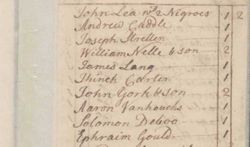 John Lea no 2 Negroes 1 2
Andrew Caddle 1
Joseph Stretten 1
William Nelle & son 2
James Lang 1
Thinck Carter 1
John Gork & son 2
Aaron Vanhouchs 1
Solomon Deboo 1
Ephraim Gould 1